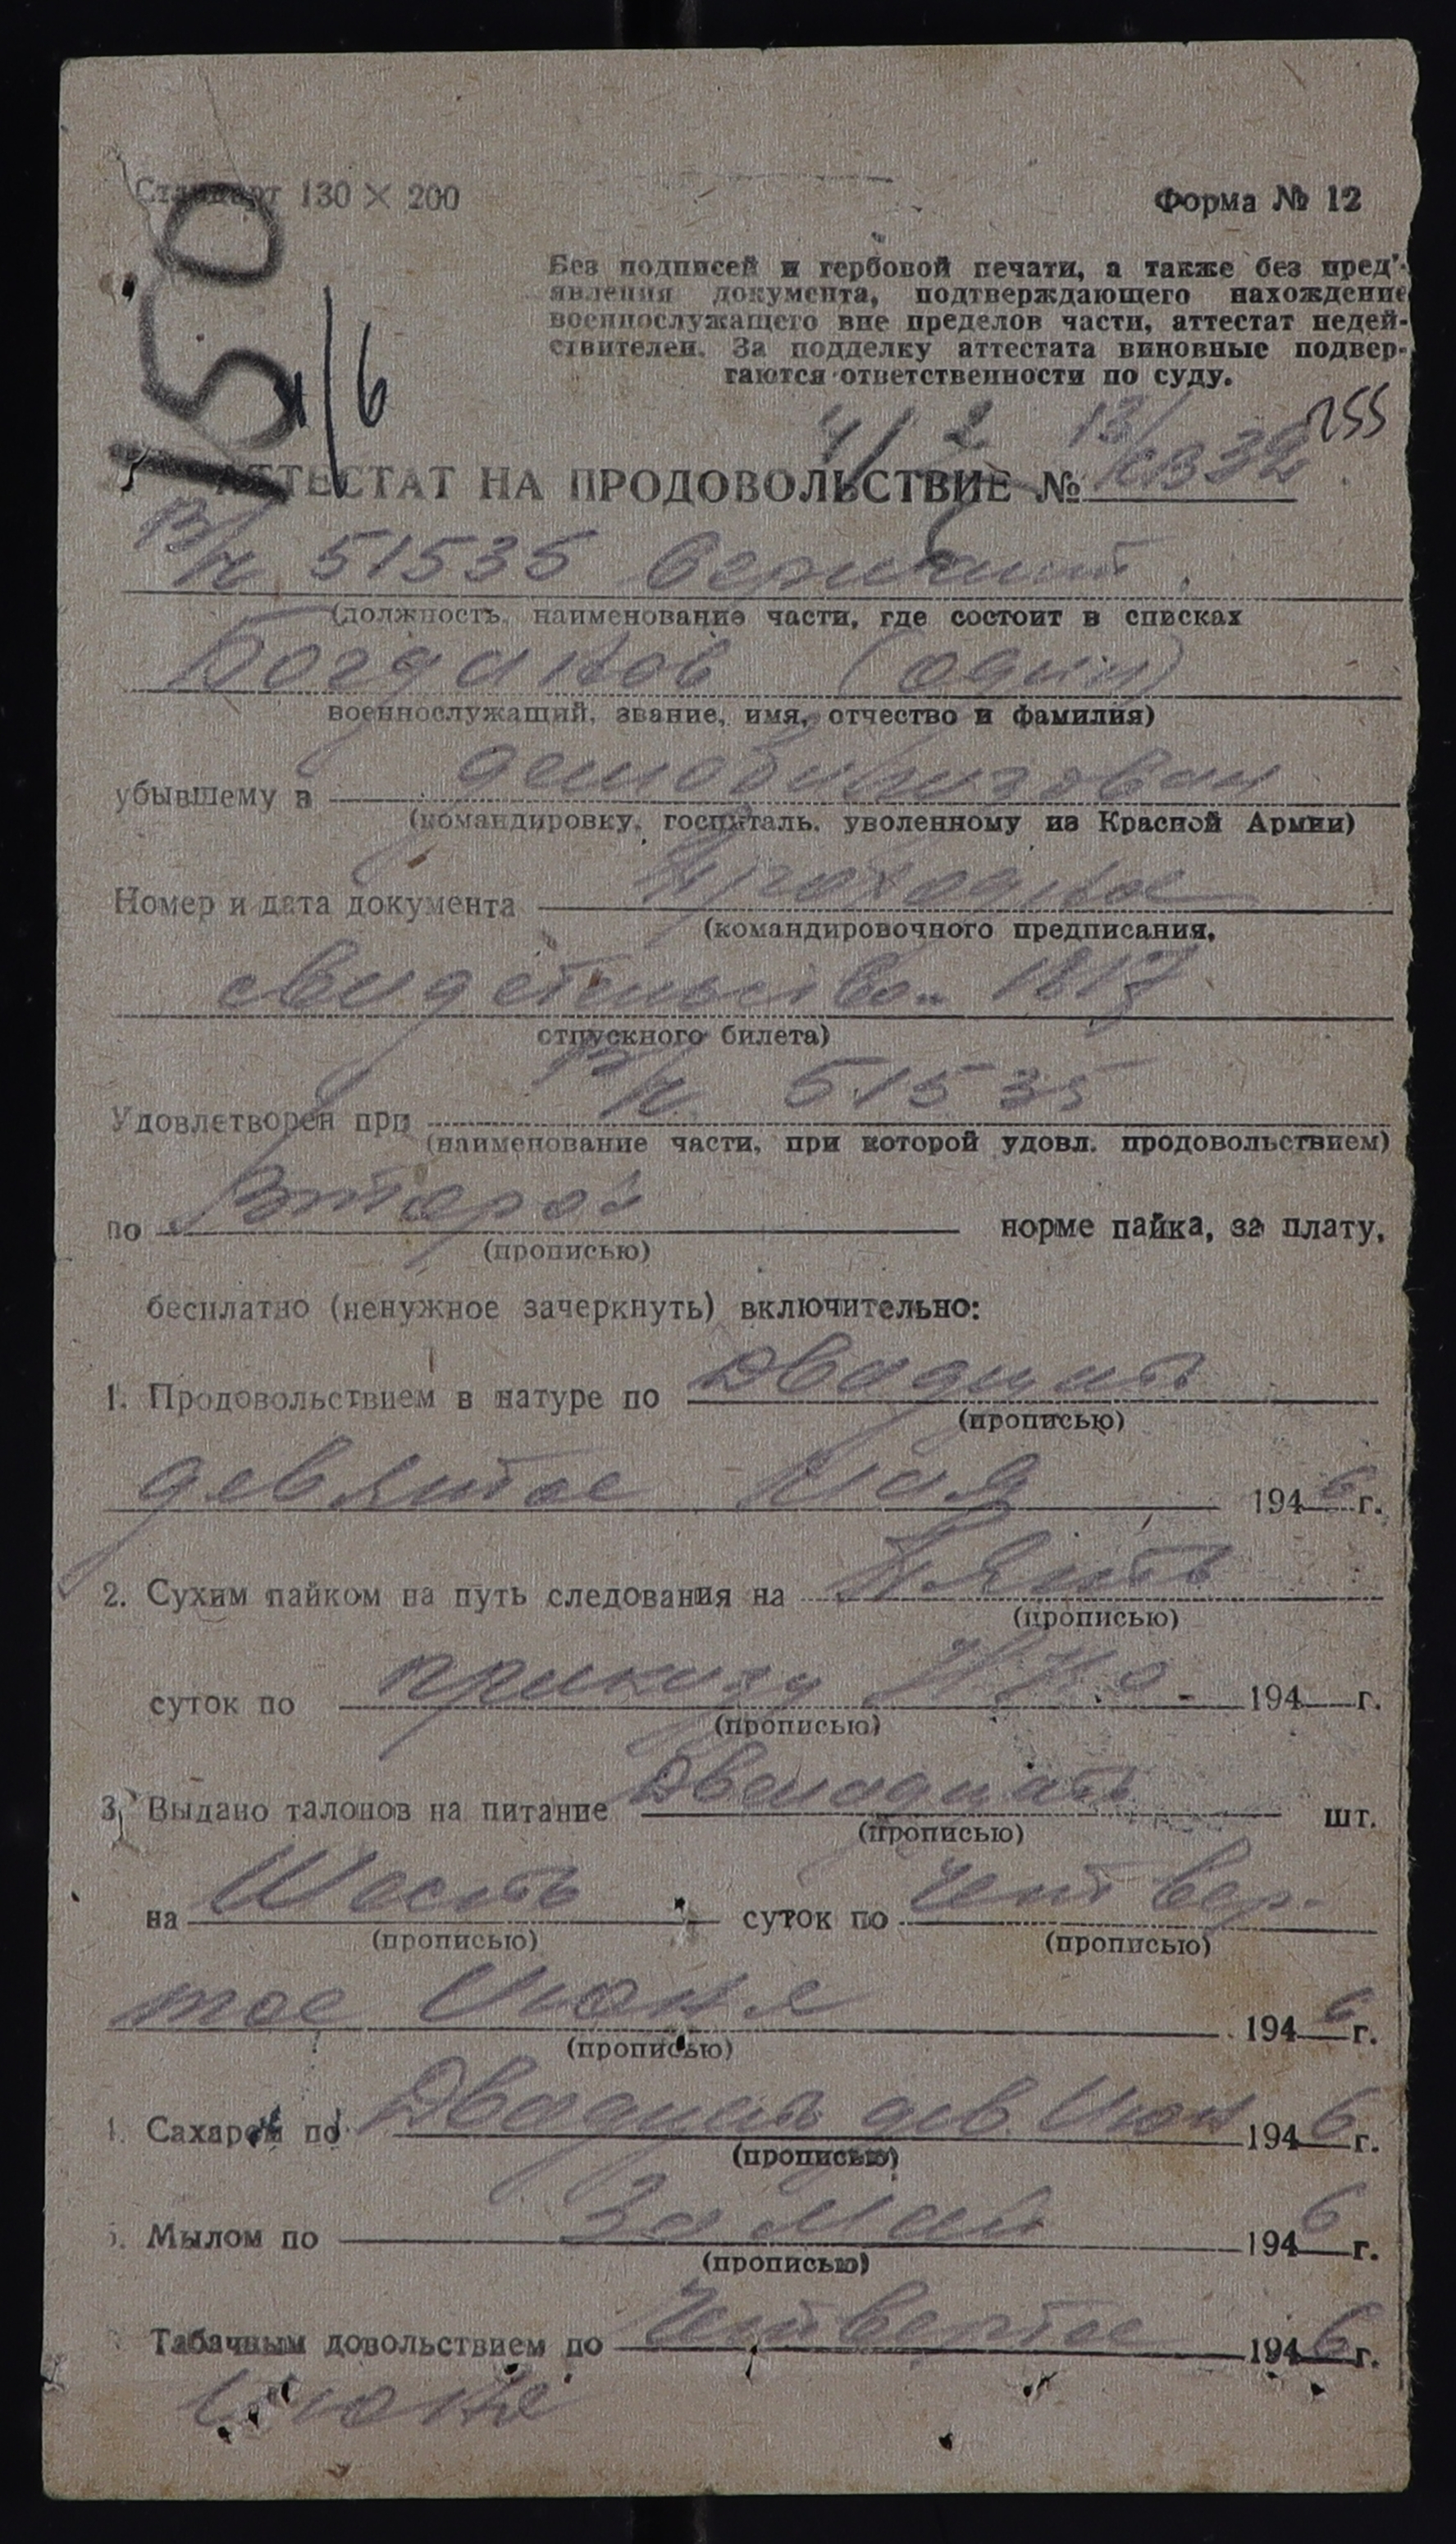 Стандарт 130 × 200
Форма № 12
150
4/6
Без подписей и гербовой печати, а также без пред'-
явления документа, подтверждающего нахождение
военнослужащего вне пределов части, аттестат недей-
ствителен. За подделку аттестата виновные подвер-
гаются ответственности по суду.
4/2
255
АТТЕСТАТ НА ПРОДОВОЛЬСТВИЕ №
В/ч 51535
(должность, наименование части, где состоит в списках
Богданов (один)
военнослужащий, звание, имя, отчество и фамилия)
убывшему в демобилизован
(командировку, госпиталь, уволенному из Красной Армии)
Номер и дата документа проходное
(командировочного предписания,
свидетельство 1817
отпускного билета)
В/ч 51535
Удовлетворен при
(наименование части, при которой удовл. продовольствием)
по Второй норме пайка, за плату,
(прописью)
бесплатно (ненужное зачеркнуть) включительно:
1. Продовольствием в натуре по Двадцать
(прописью)
девятое Мая 1946 г.
2. Сухим пайком на путь следования на Пять
(прописью)
суток по приказу НКО 194 г.
(прописью)
3. Выдано талонов на питание Двенадцать шт.
(прописью)
на Шесть суток по Четвер-
(прописью) (прописью)
тое Июня 1946 г.
(прописью)
4. Сахаром по Двадцать дев. Июн 1946 г.
(прописью)
5. Мылом по За Май 1946 г.
(прописью)
Табачным довольствием по Четвертое 1946 г.
Июня